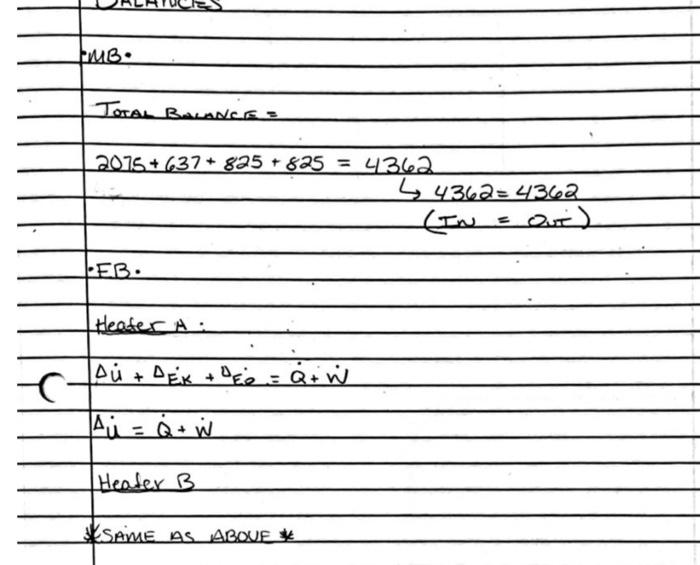 BALANCES
•MB•
TOTAL BALANCE =
2075 + 637 + 825 + 825 = 4362
↳ 4362 = 4362
(IN = OUT)
•EB•
Heater A :
ΔU̇ + ΔĖK + ΔĖP = Q̇ + Ẇ
ΔU̇ = Q̇ + Ẇ
Heater B
*SAME AS ABOVE*